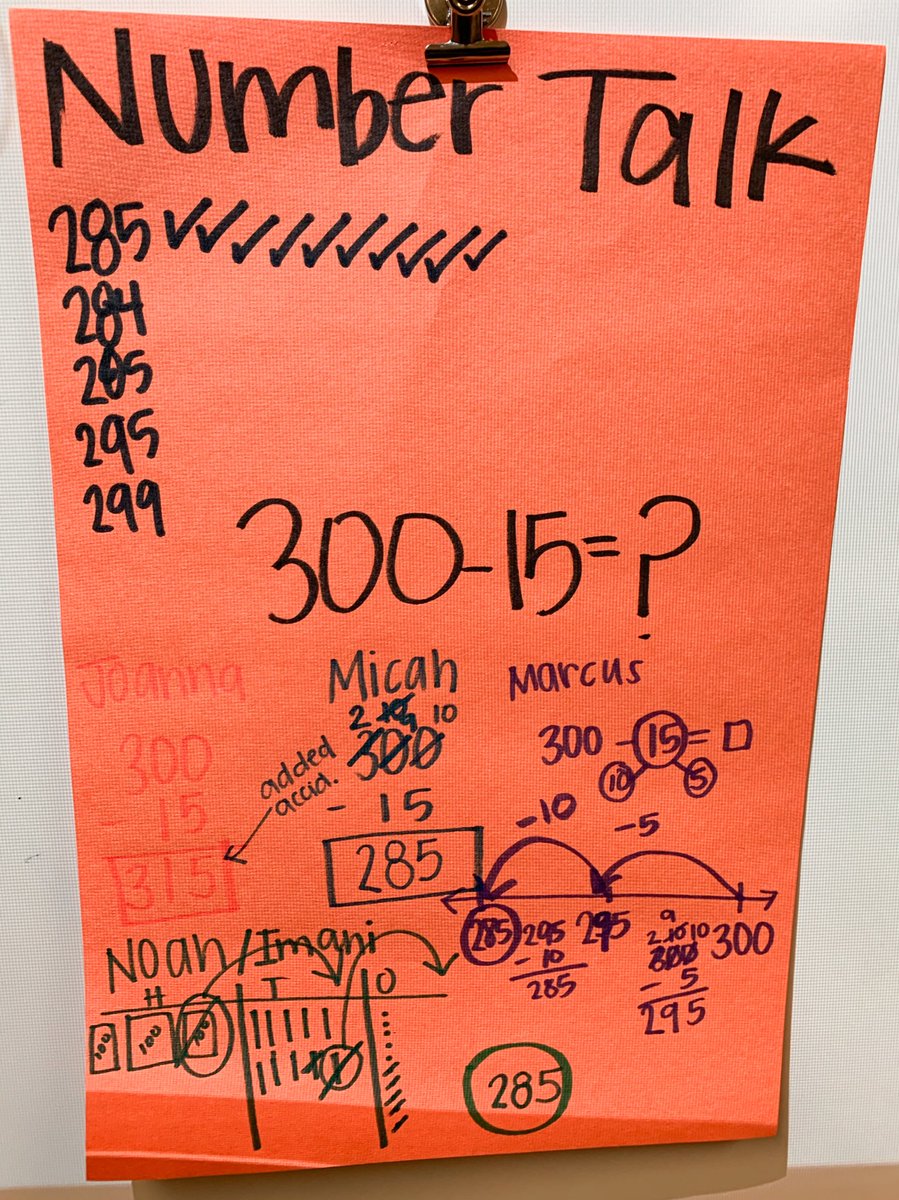 Number Talk
285 ✓✓✓✓✓✓✓✓✓
284
285
295
299
300-15=?
Joanna
300
- 15
315
added
accid.
Micah
2 10 9 10
300
- 15
285
Marcus
300 - 15 = □
10 5
-10 -5
285 295 300
295
- 10
285
9
2 10 10
300
- 5
295
Noah/Imani
H T O
100 100 100
285